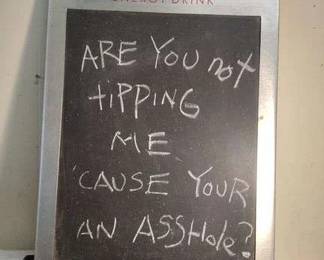 ENERGY DRINK
ARE YOU not
tiPPiNG
ME
'CAUSE YOUR
AN ASSHole?